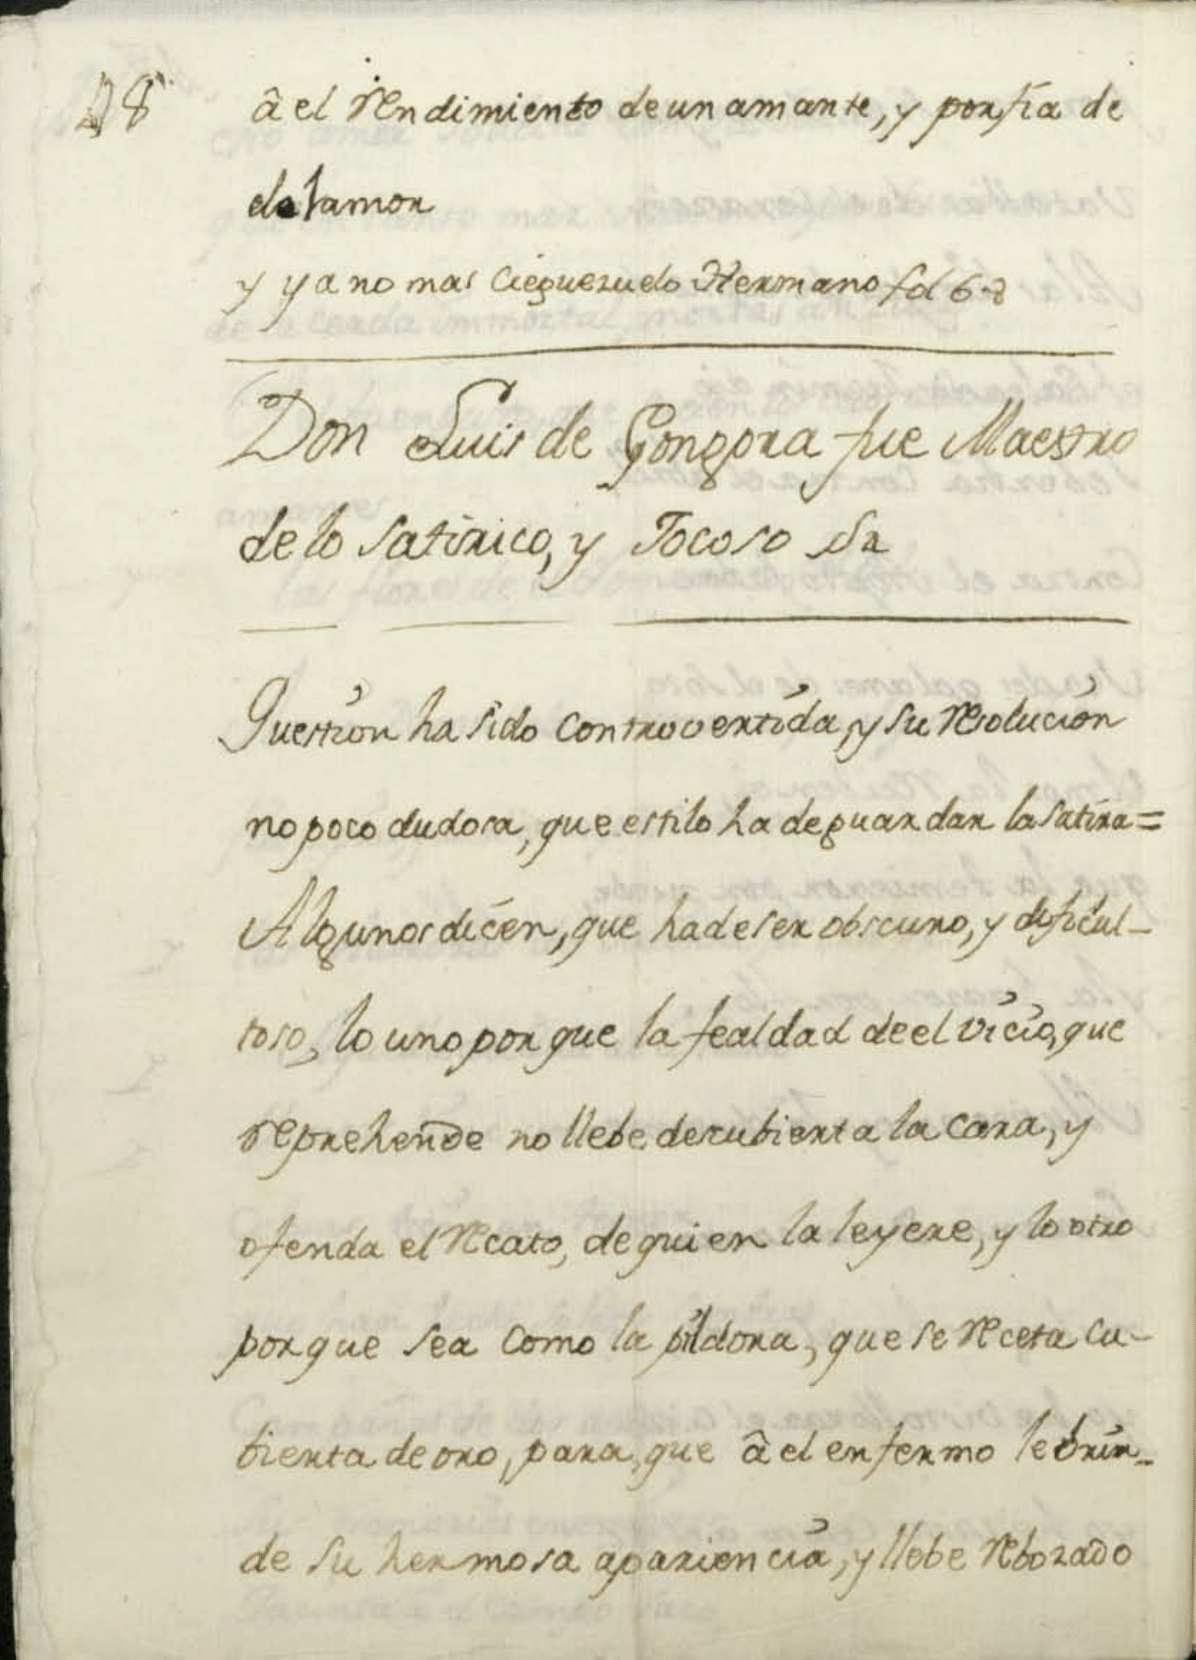 18
â el rendimiento de un amante, y porfía de
del amor
y ya no mas Cieguezuelo Hermano fol 68
Don Luis de Gongora fue Maestro
de lo Satirico, y Jocoso
Question ha sido controvertida, y su resolucion
no poco dudosa, que estilo ha de guardar la Satira=
Algunos dicen, que ha de ser obscuro, y dificul-
toso, lo uno por que la fealdad de el vicio, que
reprehende no llebe descubierta la cara, y
ofenda el recato, de quien la leyere, y lo otro
por que sea como la pildora, que se receta cu-
bierta de oro, para, que â el enfermo le brin-
de su hermosa apariencia, y llebe rebozado